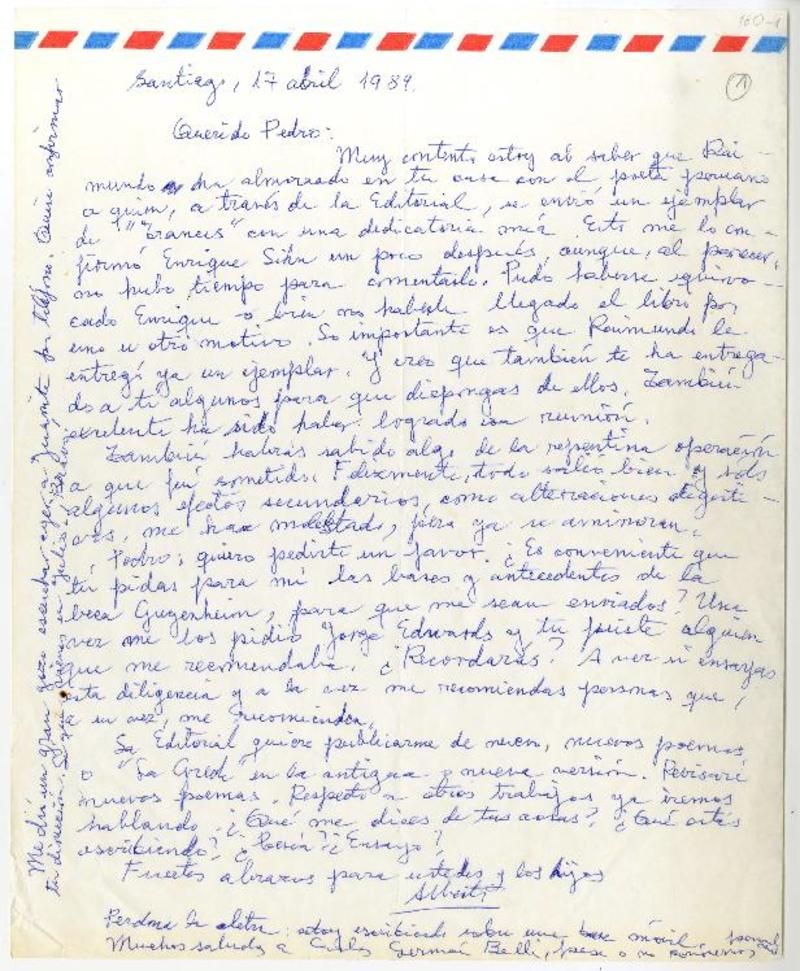 160-1
1
Santiago, 17 abril 1989.
Querido Pedro:
Muy contento estoy al saber que Rai-
mundo ha almorzado en tu casa con el poeta peruano
a quien, a través de la Editorial, se envió un ejemplar
de "Trances" con una dedicatoria mía. Esto me lo con-
firmó Enrique Lihn un poco después, aunque, al parecer,
no hubo tiempo para comentarlo. Pudo haberse equivo-
cado Enrique o bien no haberle llegado el libro por
uno u otro motivo. Lo importante es que Raimundo le
entregó ya un ejemplar. Y creo que también te ha entrega-
do a ti algunos para que dispongas de ellos. También
excelente ha sido haber logrado esa reunión.
También habrás sabido algo de la repentina operación
a que fuí sometido. Felizmente, todo salió bien y sólo
algunos efectos secundarios, como alteraciones digesti-
vas, me han molestado, pero ya se aminoran.
Pedro: quiero pedirte un favor. ¿Es conveniente que
tú pidas para mí las bases y antecedentes de la
beca Gugenheim, para que me sean enviados? Una
vez me los pidió Jorge Edwards y tu fuiste alguien
que me recomendaba. ¿Recordarás? A ver si ensayas
esta diligencia y a la vez me recomiendas personas que,
a su vez, me recomienden.
La Editorial quiere publicarme de nuevo, nuevos poemas
o "La Greda" en la antigua o nueva versión. Revisaré
nuevos poemas. Respecto a otros trabajos ya iremos
hablando. ¿Qué me dices de tus cosas? ¿Qué estás
escribiendo? ¿Poesía? ¿Ensayo?
Fuertes abrazos para ustedes y los hijos
Alberto
Perdona la letra: estoy escribiendo sobre una base móvil,
Muchos saludos a Carlos Germán Belli, pese a no conocernos
Me dió un gran gozo escuchar ayer a Juanita por teléfono. Quise confirmar
tu dirección.